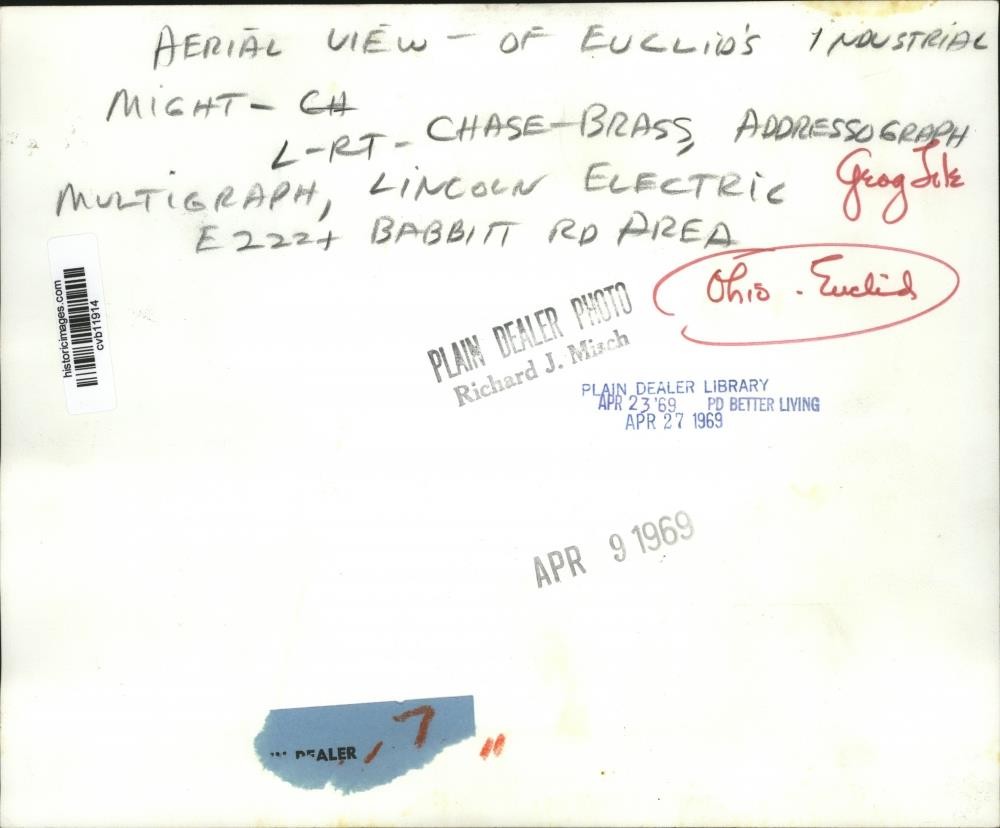 AERIAL VIEW - OF EUCLID'S INDUSTRIAL
MIGHT - CH
L-RT- CHASE-BRASS, ADDRESSOGRAPH
MULTIGRAPH, LINCOLN ELECTRIC
E 222+ BABBITT RD AREA
Geog File
Ohio - Euclid
historicimages.com
cvb11914
PLAIN DEALER PHOTO
Richard J. Misch
PLAIN DEALER LIBRARY
APR 23 '69 PD BETTER LIVING
APR 27 1969
APR 9 1969
DEALER
7"